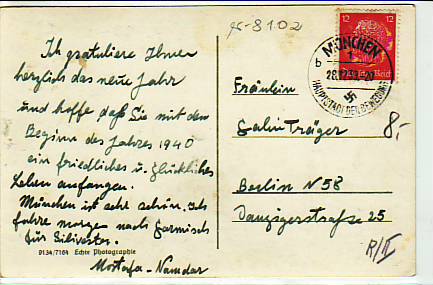 75-8102
Ich gratuliere Ihnen
herzlich das neue Jahr
und hoffe daß Sie mit dem
Beginn des Jahres 1940
ein friedliches u. glückliches
Leben anfangen.
München ist sehr schön. Ich
fahre morgen nach Garmisch
für Silvester.
9134/7164 Echte Photographie
Mostafa-Namdar
12 12
Deutsches Reich
MÜNCHEN
b
28.12.
HAUPTSTADT DER BEWEGUNG
8,-
Fräulein
Träger
Berlin N 58
Danzigerstraße 25
R/II